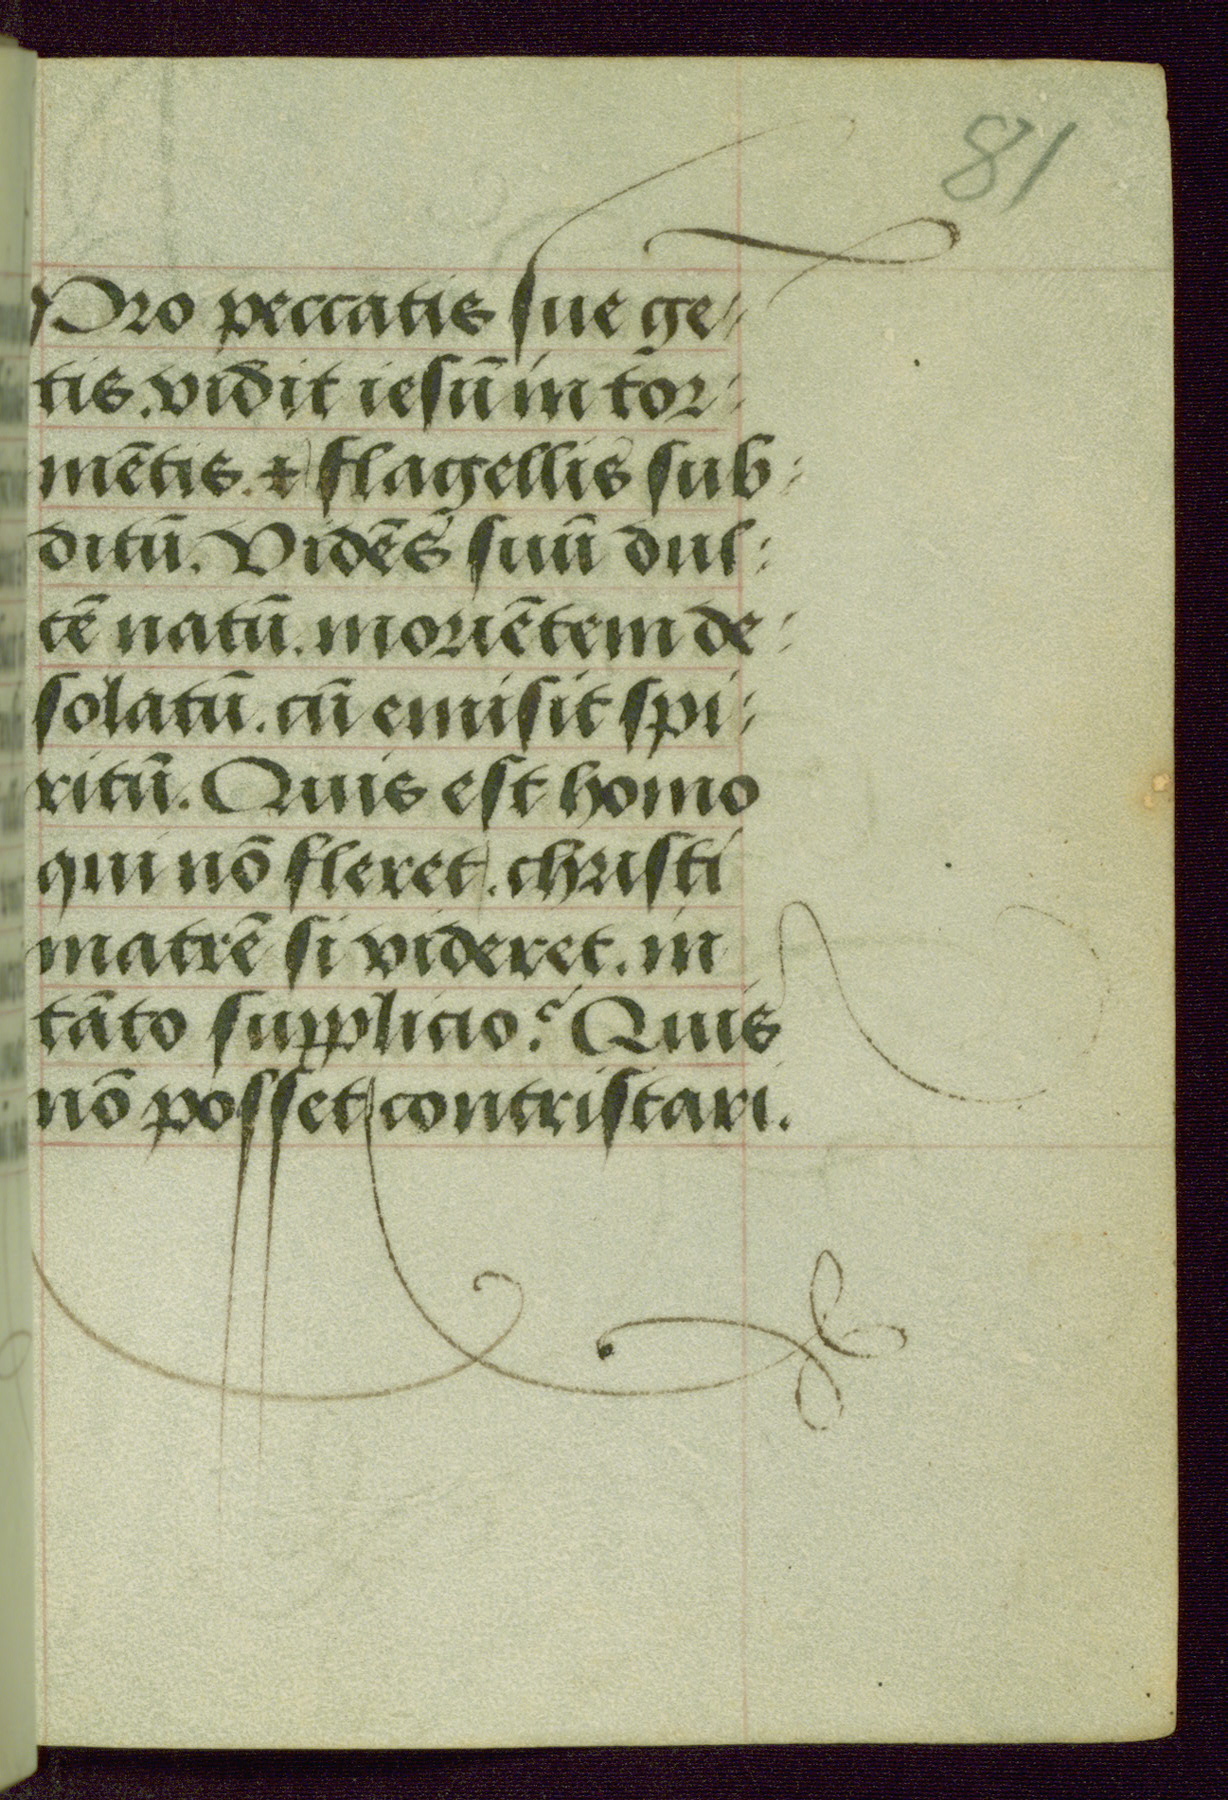 81
Pro peccatis sue ge⸗
tis. vidit iesū in tor⸗
mētis. & flagellis sub⸗
ditū. Vidēs suū dul⸗
cē natū. moriētem de⸗
solatū. cū emisit spi⸗
ritū. Quis est homo
qui nō fleret. christi
matrē si videret. in
tāto supplicio? Quis
nō posset contristari.